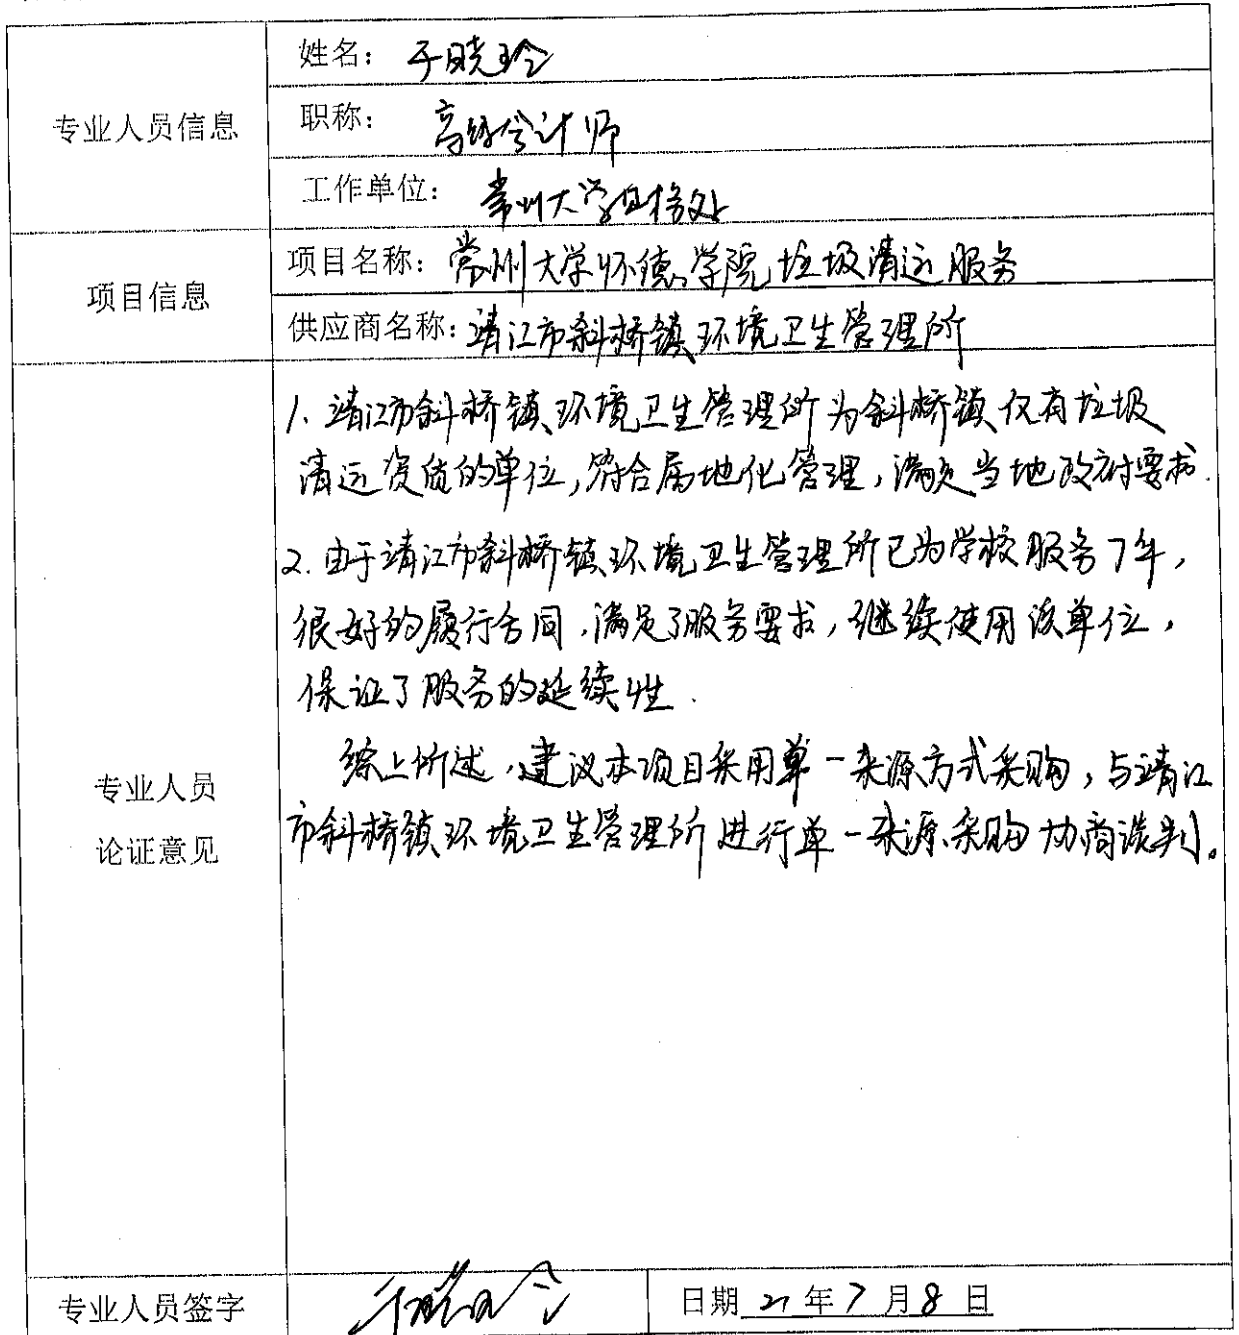 姓名：于晓玲
职称：高级会计师
专业人员信息
工作单位：常州大学财务处
项目名称：常州大学怀德学院垃圾清运服务
项目信息
供应商名称：靖江市斜桥镇环境卫生管理所
1. 靖江市斜桥镇环境卫生管理所为斜桥镇仅有垃圾
清运资质的单位，符合属地化管理，满足当地政府要求.
2. 由于靖江市斜桥镇环境卫生管理所已为学校服务7年，
很好的履行合同，满足了服务要求，继续使用该单位，
保证了服务的延续性.
综上所述，建议本项目采用单一来源方式采购，与靖江
市斜桥镇环境卫生管理所进行单一来源采购协商谈判。
专业人员
论证意见
专业人员签字 于晓玲 日期 21 年 7 月 8 日